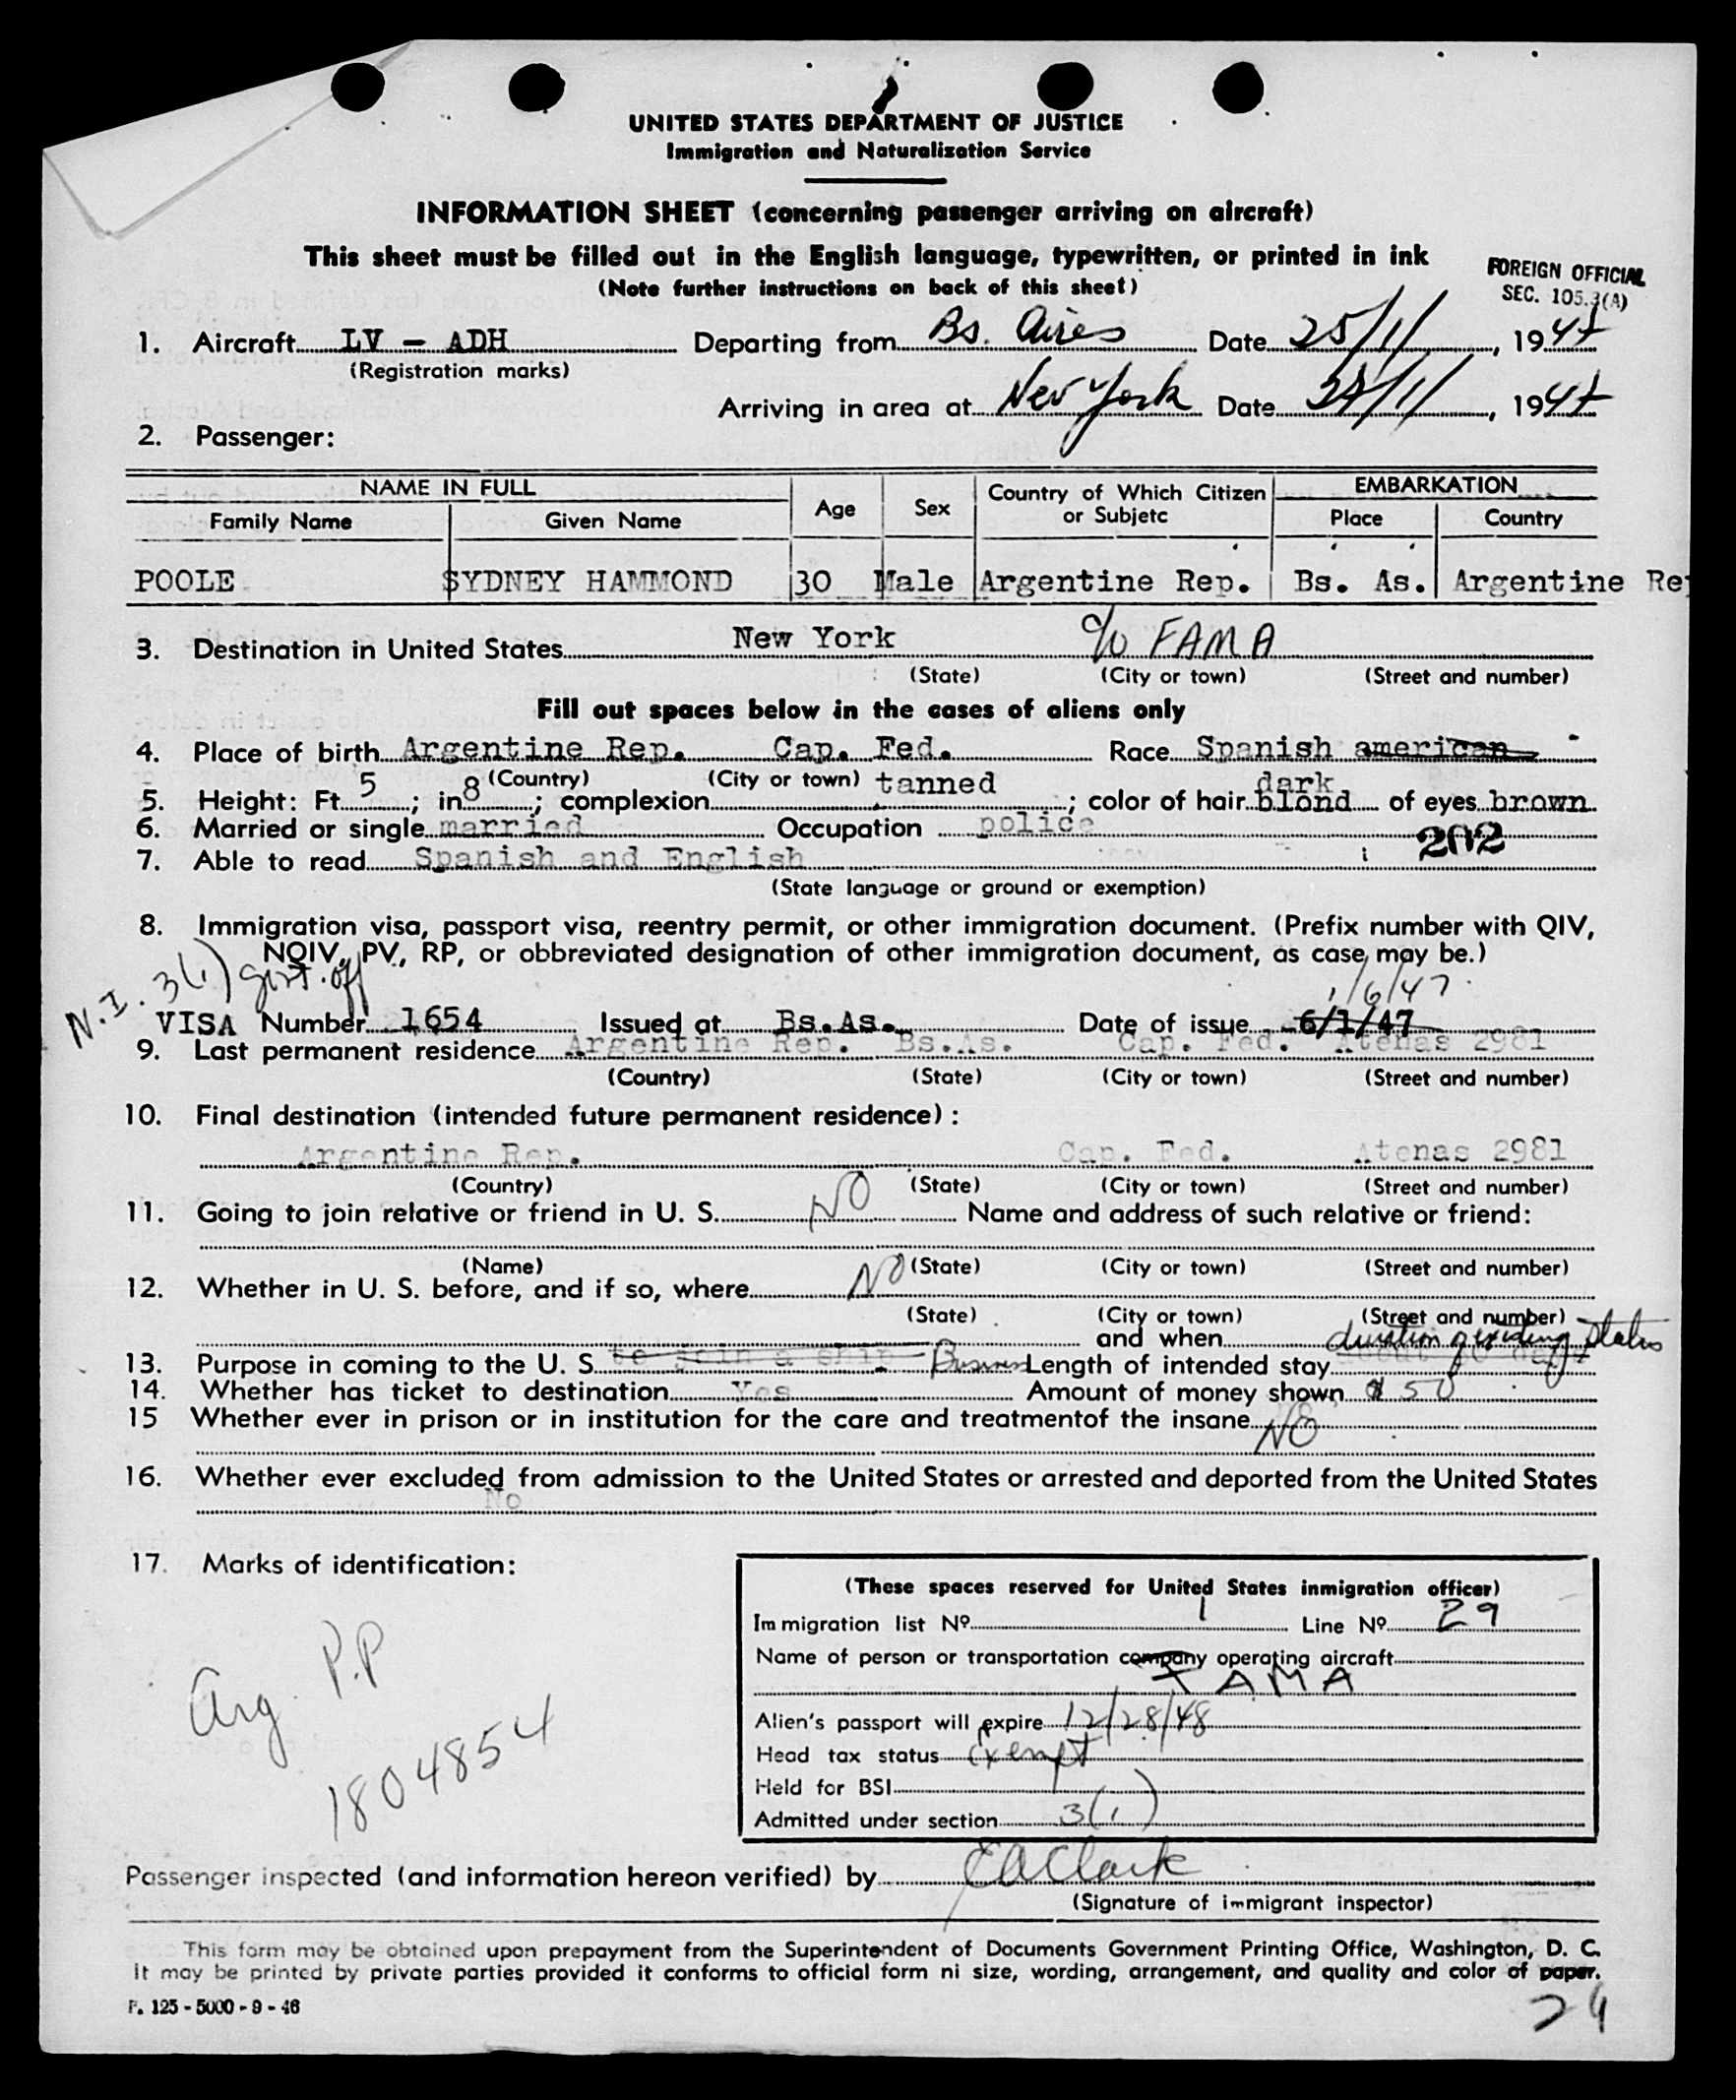 UNITED STATES DEPARTMENT OF JUSTICE
Immigration and Naturalization Service
INFORMATION SHEET (concerning passenger arriving on aircraft)
This sheet must be filled out in the English language, typewritten, or printed in ink
(Note further instructions on back of this sheet)
FOREIGN OFFICIAL
SEC. 105.3(A)
1. Aircraft LV - ADH Departing from Bs. Aires Date 25/1/, 1947
(Registration marks)
Arriving in area at New York Date /1/, 1947
2. Passenger:
NAME IN FULL Age Sex Country of Which Citizen or Subjetc EMBARKATION
Family Name Given Name Place Country
POOLE SYDNEY HAMMOND 30 Male Argentine Rep. Bs. As. Argentine Re
3. Destination in United States New York c/o FAMA
(State) (City or town) (Street and number)
Fill out spaces below in the cases of aliens only
4. Place of birth Argentine Rep. Cap. Fed. Race Spanish american
(Country) (City or town)
5. Height: Ft. 5; in 8; complexion tanned; color of hair dark blond of eyes brown
6. Married or single married Occupation police
202
7. Able to read Spanish and English
(State language or ground or exemption)
8. Immigration visa, passport visa, reentry permit, or other immigration document. (Prefix number with QIV,
NQIV, PV, RP, or abbreviated designation of other immigration document, as case may be.)
N.I. 3(1) govt. off
1/6/47
VISA Number 1654 Issued at Bs.As. Date of issue 6/1/47
9. Last permanent residence Argentine Rep. Bs.As. Cap. Fed. Atenas 2981
(Country) (State) (City or town) (Street and number)
10. Final destination (intended future permanent residence):
Argentine Rep. Cap. Fed. Atenas 2981
(Country) (State) (City or town) (Street and number)
11. Going to join relative or friend in U. S. NO Name and address of such relative or friend:
(Name) (State) (City or town) (Street and number)
12. Whether in U. S. before, and if so, where NO
(State) (City or town) (Street and number)
and when
duration existing status
13. Purpose in coming to the U. S. to join a ship Business Length of intended stay
14. Whether has ticket to destination Yes Amount of money shown $ 50
15 Whether ever in prison or in institution for the care and treatmentof the insane NO
16. Whether ever excluded from admission to the United States or arrested and deported from the United States
No
17. Marks of identification:
Arg. P.P
1804854
(These spaces reserved for United States inmigration officer)
Immigration list Nº 1 Line Nº 29
Name of person or transportation company operating aircraft
FAMA
Alien's passport will expire 12/28/48
Head tax status Exempt
Held for BSI
Admitted under section 3(1)
Passenger inspected (and information hereon verified) by E A Clark
(Signature of immigrant inspector)
This form may be obtained upon prepayment from the Superintendent of Documents Government Printing Office, Washington, D. C.
It may be printed by private parties provided it conforms to official form ni size, wording, arrangement, and quality and color of paper.
F. 125 - 5000 - 9 - 46